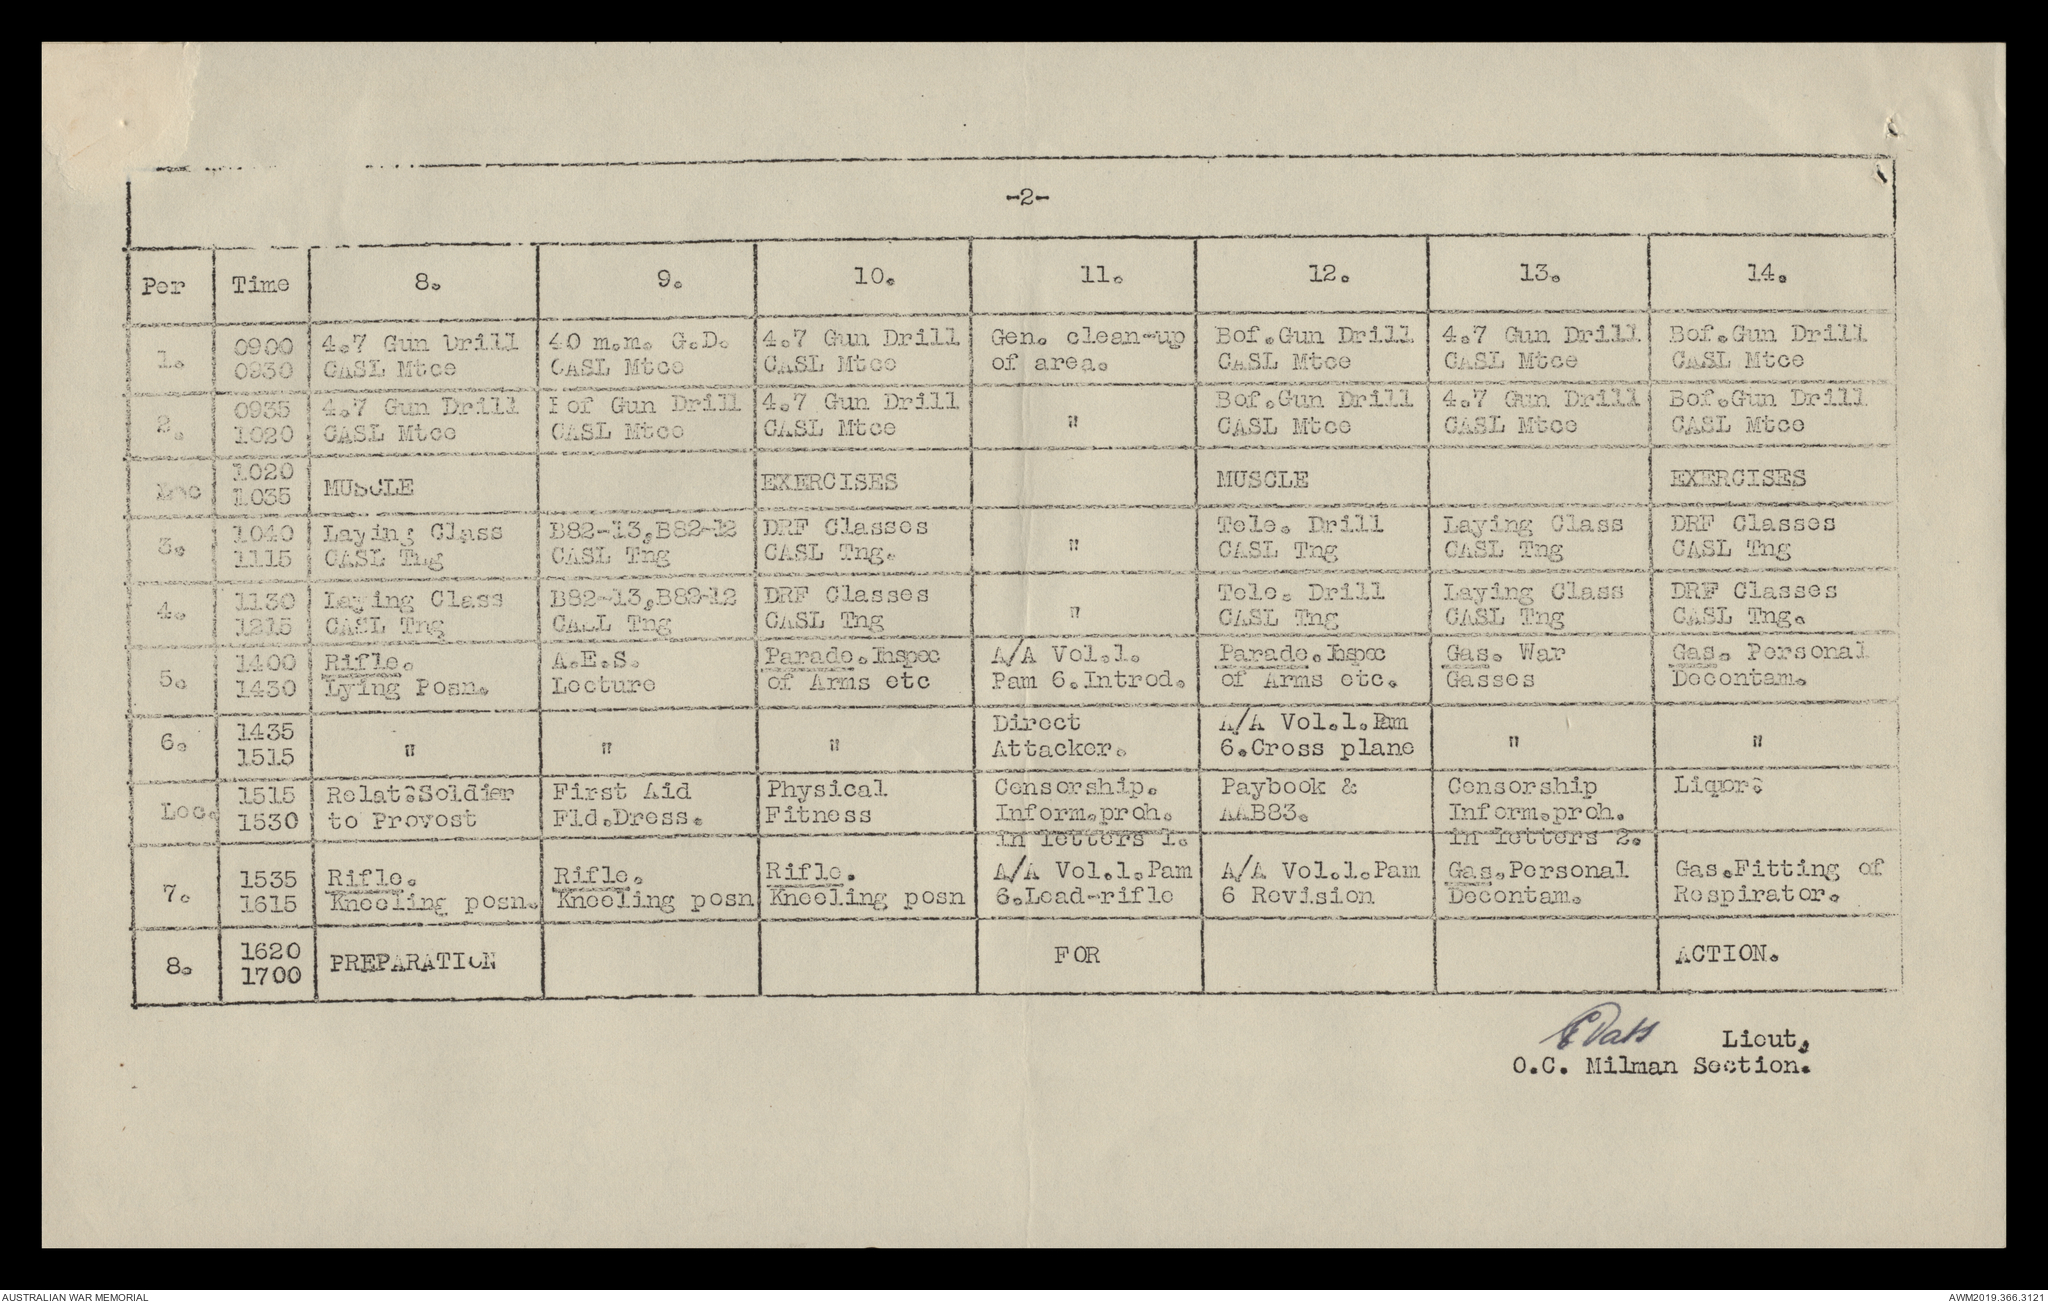 -2-
Per Time 8. 9. 10. 11. 12. 13. 14.
1. 0900 4.7 Gun Drill 40 m.m. G.D. 4.7 Gun Drill Gen. clean-up Bof.Gun Drill 4.7 Gun Drill Bof.Gun Drill
0930 CASL Mtce CASL Mtce CASL Mtce of area. CASL Mtce CASL Mtce CASL Mtce
2. 0935 4.7 Gun Drill Bof Gun Drill 4.7 Gun Drill " Bof.Gun Drill 4.7 Gun Drill Bof.Gun Drill
1020 CASL Mtce CASL Mtce CASL Mtce CASL Mtce CASL Mtce CASL Mtce
1020
1035 MUSCLE EXERCISES MUSCLE EXERCISES
3. 1040 Laying Class B82-13,B82-12 DRF Classes " Tele. Drill Laying Class DRF Classes
1115 CASL Tng CASL Tng CASL Tng. CASL Tng CASL Tng CASL Tng
4. 1130 Laying Class B82-13,B82-12 DRF Classes " Tele. Drill Laying Class DRF Classes
1215 CASL Tng CASL Tng CASL Tng CASL Tng CASL Tng CASL Tng.
5. 1400 Rifle. A.E.S. Parade.Inspec A/A Vol.1. Parade.Inspec Gas. War Gas. Personal
1430 Lying Posn. Lecture of Arms etc Pam 6.Introd. of Arms etc. Gasses Decontam.
6. 1435 " " " Direct A/A Vol.1.Pam " "
1515 Attacker. 6.Cross plane
Lec. 1515 Relat:Soldier First Aid Physical Censorship. Paybook & Censorship Liquor:
1530 to Provost Fld.Dress. Fitness Inform.proh. AAB83. Inform.proh.
in letters 1. in letters 2.
7. 1535 Rifle. Rifle. Rifle. A/A Vol.1.Pam A/A Vol.1.Pam Gas.Personal Gas.Fitting of
1615 Kneeling posn. Kneeling posn Kneeling posn 6.Lead-rifle 6 Revision Decontam. Respirator.
8. 1620 PREPARATION FOR ACTION.
1700
Lieut,
O.C. Milman Section.
AUSTRALIAN WAR MEMORIAL AWM2019.366.3121